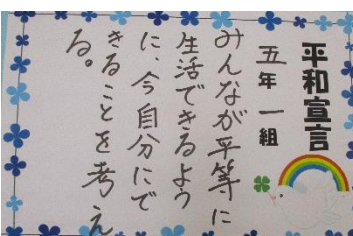 平和宣言
五年一組
みんなが平等に
生活できるよう
に、今自分にで
きることを考え
る。